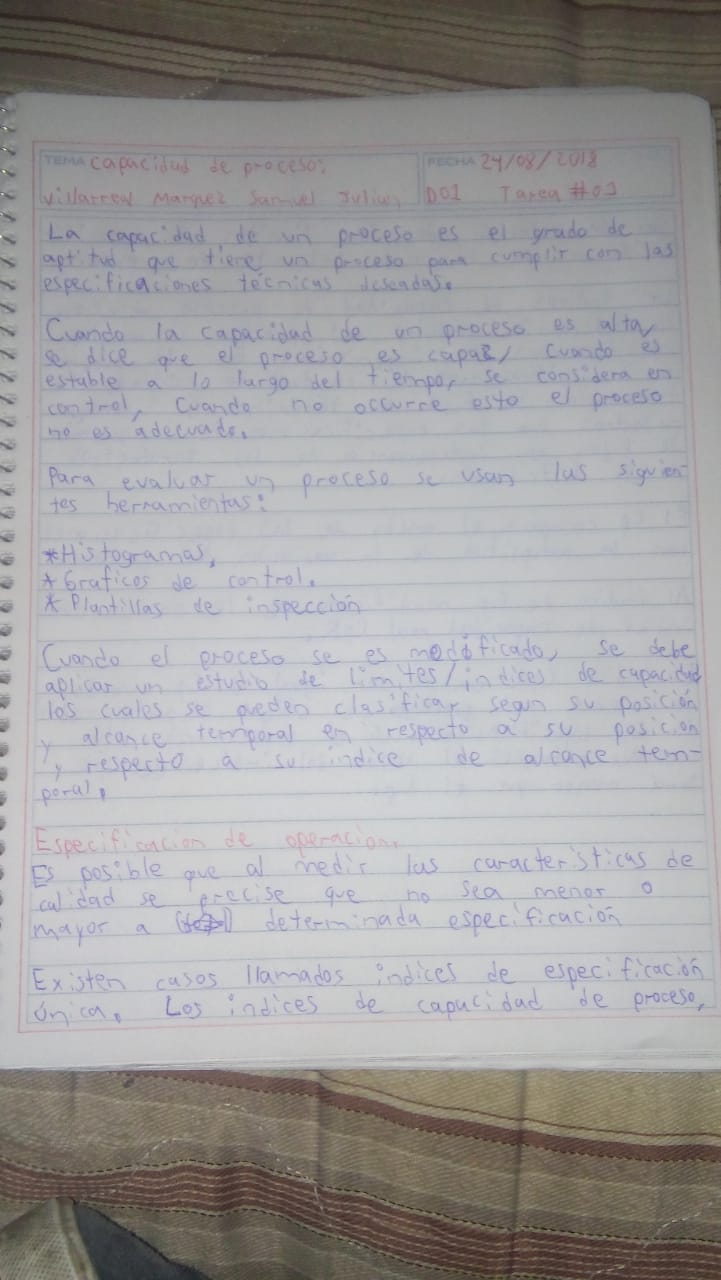 TEMA Capacidad de proceso: FECHA 24/08/2018
Villarreal Marquez Samuel Julian D01 Tarea #01
La capacidad de un proceso es el grado de
aptitud que tiene un proceso para cumplir con las
especificaciones técnicas deseadas.
Cuando la capacidad de un proceso es alta,
se dice que el proceso es capaz, cuando es
estable a lo largo del tiempo, se considera en
control, Cuando no occurre esto el proceso
no es adecuado.
Para evaluar un proceso se usan las siguien-
tes herramientas:
*Histogramas.
* Graficos de control.
* Plantillas de inspección
Cuando el proceso se es modificado, se debe
aplicar un estudio de limites/indices de capacidad
los cuales se pueden clasificar segun su posición
y alcance temporal en respecto a su posicion
y respecto a su indice de alcance tem-
poral.
Especificacion de operacion.
Es posible que al medir las caracteristicas de
calidad se precise que no sea menor o
mayor a determinada especificación
Existen casos llamados indices de especificación
única. Los indices de capacidad de proceso,